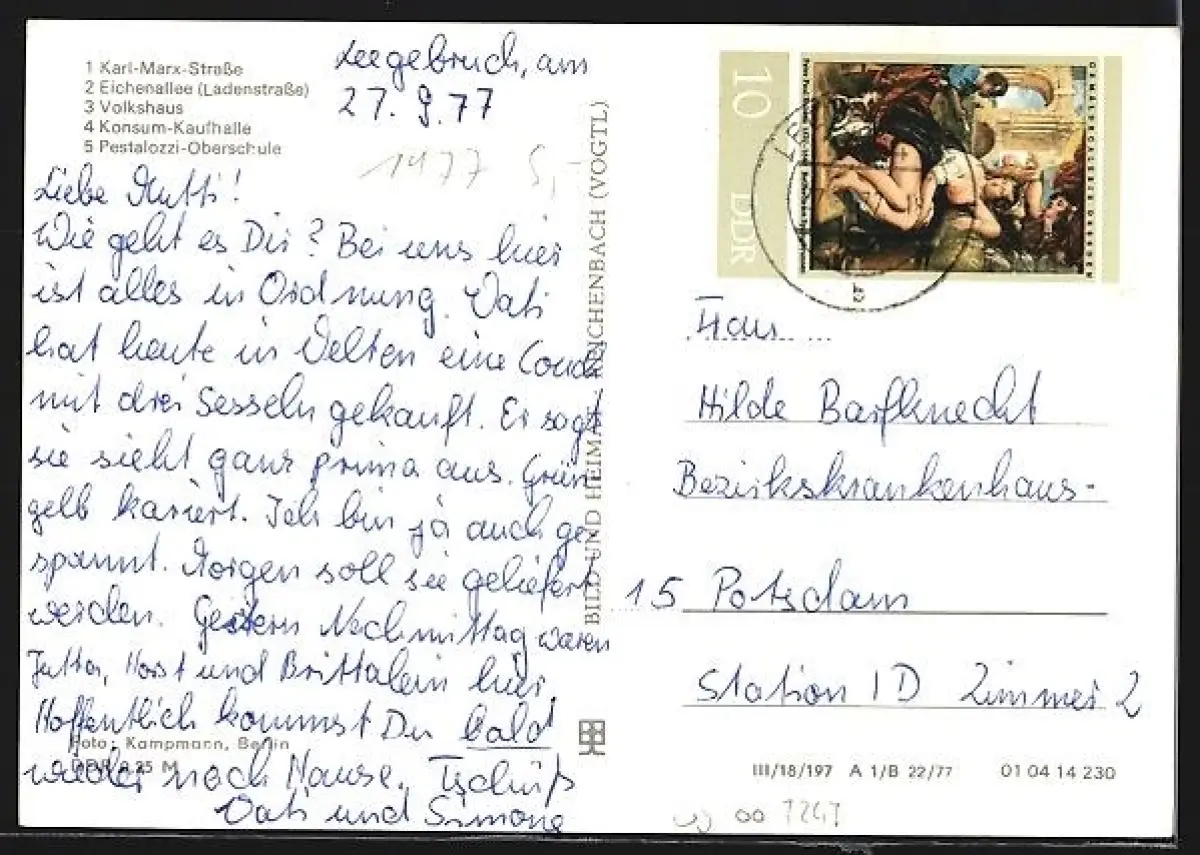 1 Karl-Marx-Straße
2 Eichenallee (Ladenstraße)
3 Volkshaus
4 Konsum-Kaufhalle
5 Pestalozzi-Oberschule
Leegebruch, am
27. 9. 77
1977 5,-
Liebe Mutti!
Wie geht es Dir? Bei uns hier
ist alles in Ordnung. Vati
hat heute in Velten eine Couch
mit drei Sesseln gekauft. Er sagt
sie sieht ganz prima aus. Grün
gelb kariert. Ich bin ja auch ge-
spannt. Morgen soll sie geliefert
werden. Gestern Nachmittag waren
Jutta, Horst und Brittalein hier
Hoffentlich kommst Du bald
wieder nach Hause. Tschüß
Vati und Simone
Foto: Kampmann, Berlin
DDR 0,25 M
BILD UND HEIMAT REICHENBACH (VOGTL)
10 DDR
GEMÄLDEGALERIE DRESDEN
Frau
Hilde Barfknecht
Bezirkskrankenhaus-
15 Potsdam
Station 1D Zimmer 2
III/18/197 A 1/B 22/77 01 04 14 230